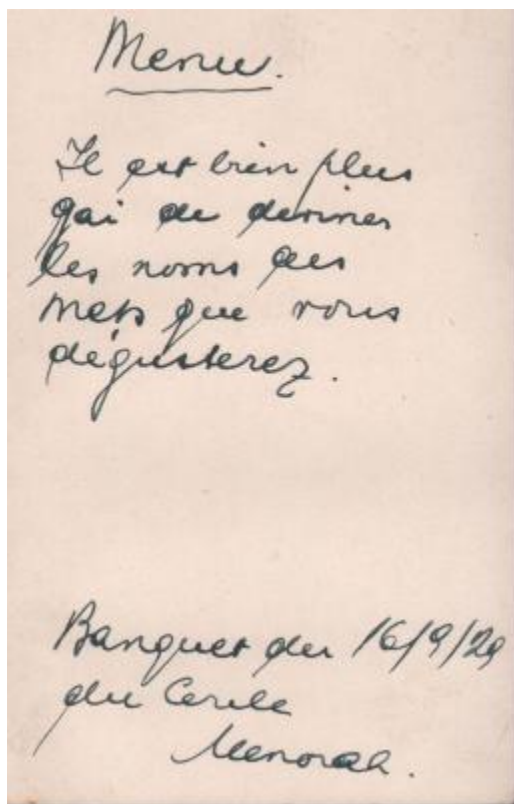 Menu.
Il est bien plus
gai de deviner
les noms des
mets que vous
dégusterez.
Banquet du 16/9/29
du Cercle
Menorah.